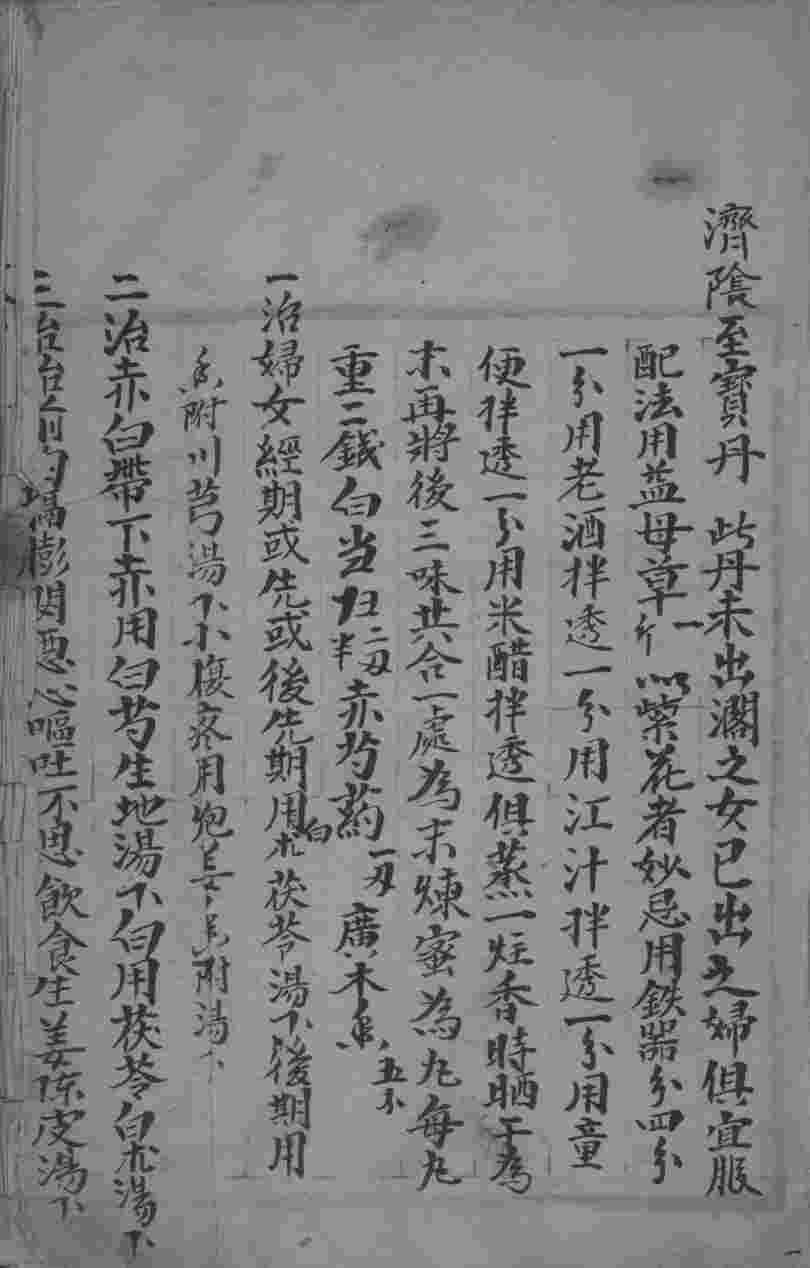 濟陰至寶丹 此丹未出閣之女已出之婦俱宜服
配法用益母草一斤以紫花者妙忌用鉄器分四分
一分用老酒拌透一分用江汁拌透一分用童
便拌透一分用米醋拌透俱蒸一炷香時晒干為
末再將後三味共合一處為末煉蜜為丸每丸
重二錢白当归二刄半赤芍药一刄廣木香五分
一治婦女經期或先或後先期用白朮茯苓湯下後期用
香附川芎湯下小腹疼用炮姜香附湯下
二治赤白帶下赤用白芍生地湯下白用茯苓白朮湯下
三治胎膨悶惡心嘔吐不思飲食生姜陈皮湯下